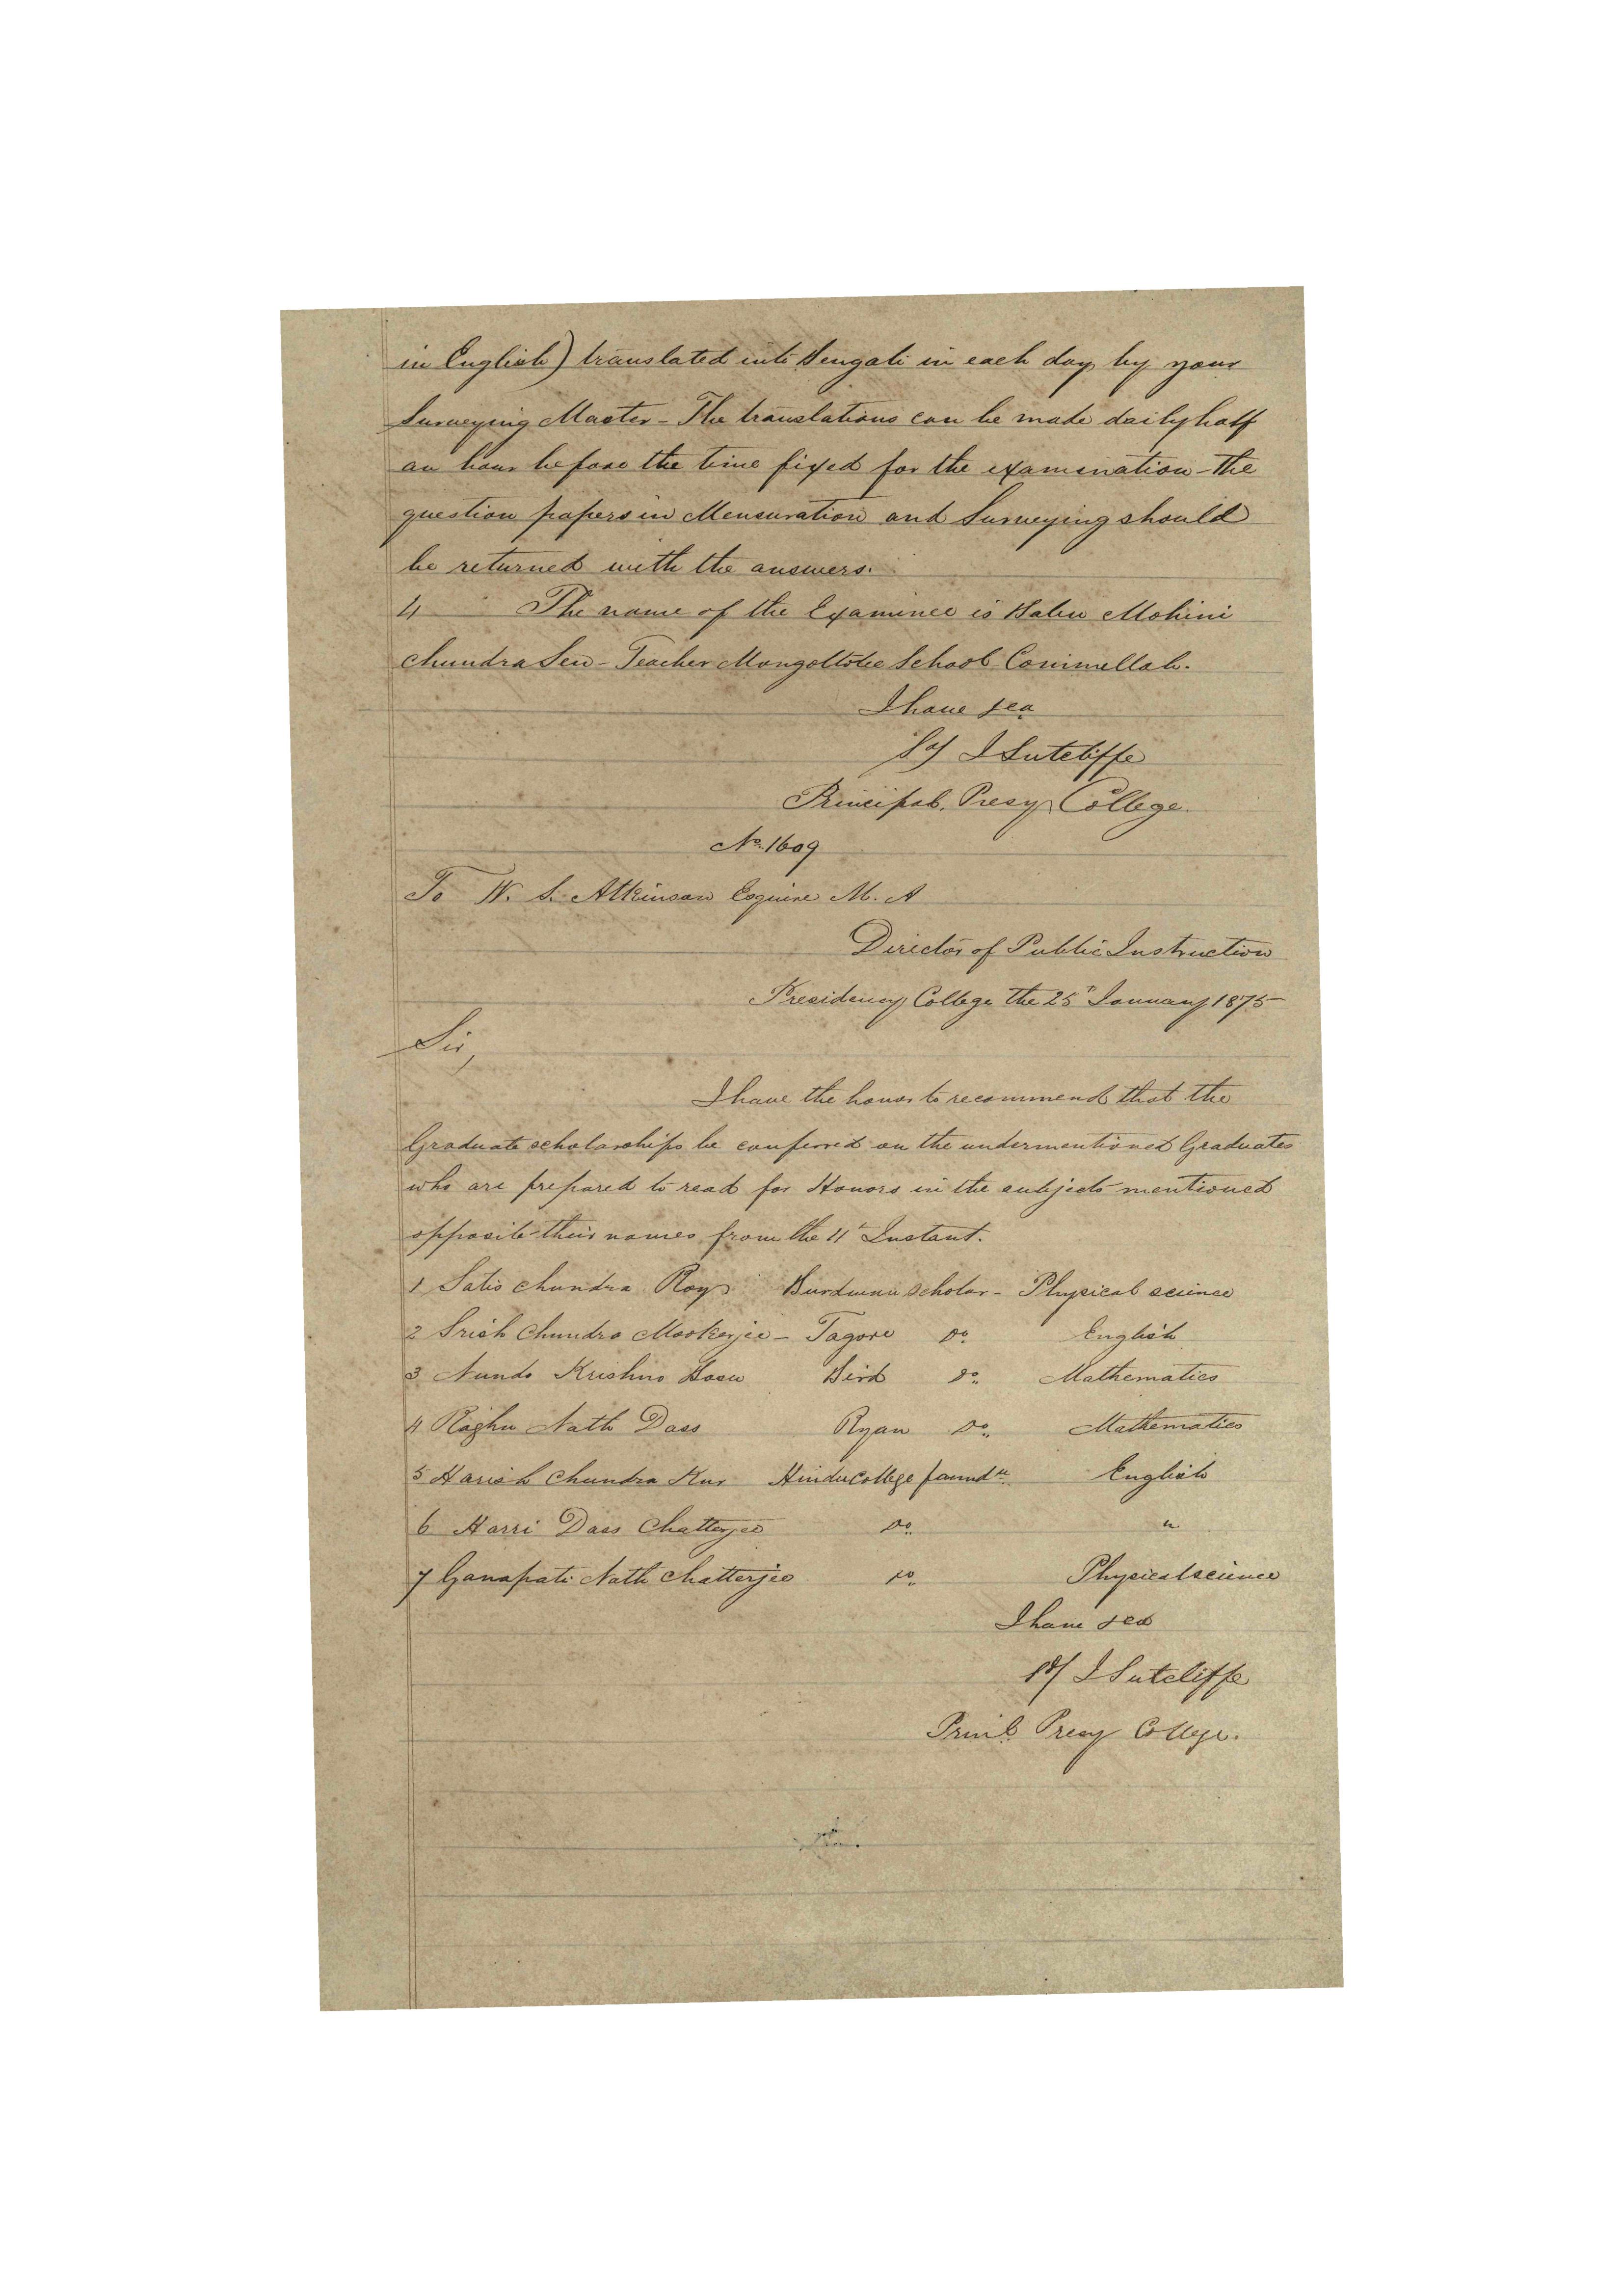 in English) translated into Bengali in each day by your
Surveying Master - The translations can be made daily half
an hour before the time fixed for the examination - The
question papers in Mensuration and Surveying should
be returned with the answers.
4 The name of the Examinee is Babu Mohini
Chundra Sen - Teacher School Commellah.
I have &ca
Sd/ J Sutcliffe
Principal, Presy College.
No. 1609
To W. S. Atkinson Esquire M. A
Director of Public Instruction
Presidency College The 25th January 1875
Sir,
I have the honor to recommend that the
Graduate scholarships be conferred on the undermentioned Graduates
who are prepared to read for Honors in the subjects mentioned
opposite their names from the 11th Instant.
1 Satis Chundra Roy Burdwan scholar - Physical science
2 Srish Chundra Mookerjee - Tagore Do. English
3 Nundo Krishno Bosu Bird Do. Mathematics
4 Raghu Nath Dass Ryan Do. Mathematics
5 Harish Chundra Kur Hindu College foundn. English
6 Harri Dass Chatterjee Do. "
7 Ganapati Nath Chatterjee Do. Physical science
I have &ca
Sd/ J Sutcliffe
Prinl. Presy College.